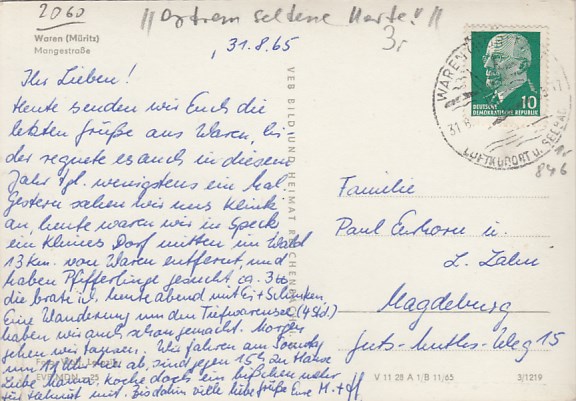 2060
"Extrem seltene Karte!"
Waren (Müritz)
Mangestraße
31.8.65
Ihr Lieben!
Heute senden wir Euch die
letzten Grüße aus Waren,
der regnete es auch in diesem
Jahr wenigstens ein Mal.
Gestern sahen wir uns Klink
an, heute waren wir in Speck
ein kleines Dorf mitten im Wald
13 km. von Waren entfernt, und
haben Pfifferlinge gesucht ca. 3
die brate ich heute abend mit Ei + Schinken.
Eine Wanderung um den Tiefwarensee (4 Std.)
haben wir auch schon gemacht. Morgen
gehen wir tanzen. Wir fahren am Sonntag
um 11 Uhr hier ab, sind gegen 15 h zu Hause
Liebe Mama, koche doch ein bißchen mehr
für mit. Bis dahin viele liebe Grüße Eure M. +
VEB BILD UND HEIMAT REICHENBACH
WAREN
31.8.
LUFTKURORT U.
10
DEUTSCHE
DEMOKRATISCHE REPUBLIK
846
Familie
Paul u.
L.
Magdeburg
Guts-Muths-Weg 15
V 11 28 A 1/B 11/65
3/1219